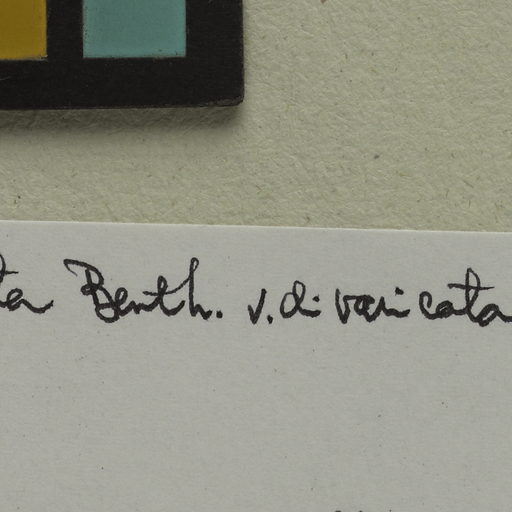 ta Benth. v. divaricata